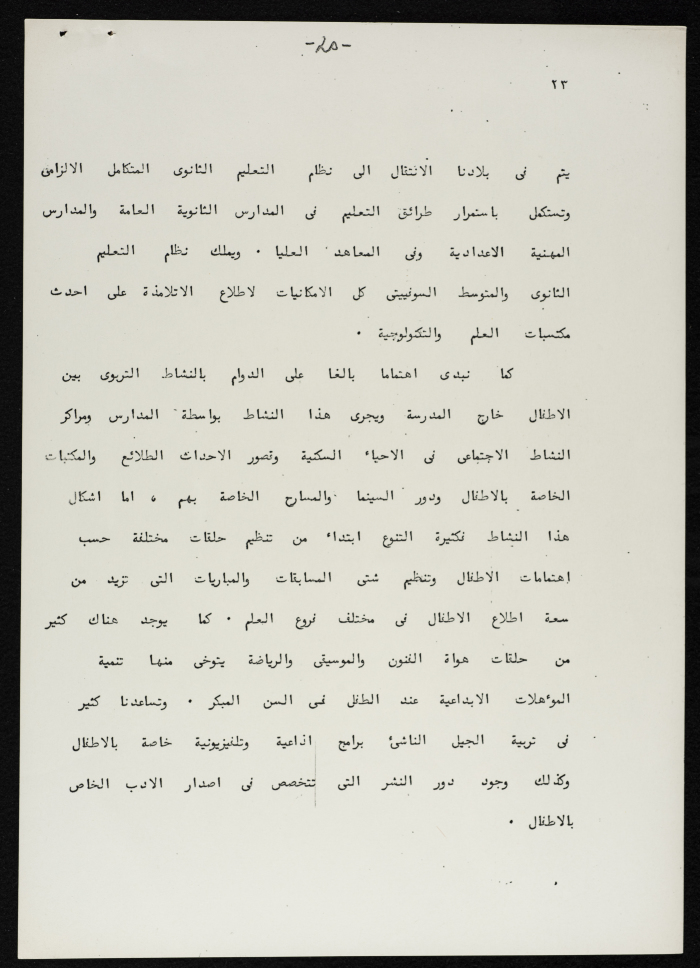 -٢٥-
٢٣
يتم فى بلادنا الانتقال الى نظام التعليم الثانوى المتكامل الالزامى
وتستكمل باستمرار طرائق التعليم فى المدارس الثانوية العامة والمدارس
المهنية الاعدادية وفى المعاهد العليا ٠ ويملك نظام التعليم
الثانوى والمتوسط السوفييتى كل الامكانيات لاطلاع الاتلامذة على احدث
مكتسبات العلم والتكنولوجية ٠
كما نبدى اهتماما بالغا على الدوام بالنشاط التربوى بين
الاطفال خارج المدرسة ويجرى هذا النشاط بواسطة المدارس ومراكز
النشاط الاجتماعى فى الاحياء السكنية وقصور الاحداث الطلائع والمكتبات
الخاصة بالاطفال ودور السينما والمسارح الخاصة بهم ، اما اشكال
هذا النشاط فكثيرة التنوع ابتداء من تنظيم حلقات مختلفة حسب
اهتمامات الاطفال وتنظيم شتى المسابقات والمباريات التى تزيد من
سعة اطلاع الاطفال فى مختلف فروع العلم ٠ كما يوجد هناك كثير
من حلقات هواة الفنون والموسيقى والرياضة يتوخى منها تنمية
الموءهلات الابداعية عند الطفل فى السن المبكر ٠ وتساعدنا كثير
فى تربية الجيل الناشئ برامج اذاعية وتلفيزيونية خاصة بالاطفال
وكذلك وجود دور النشر التى تتخصص فى اصدار الادب الخاص
بالاطفال ٠